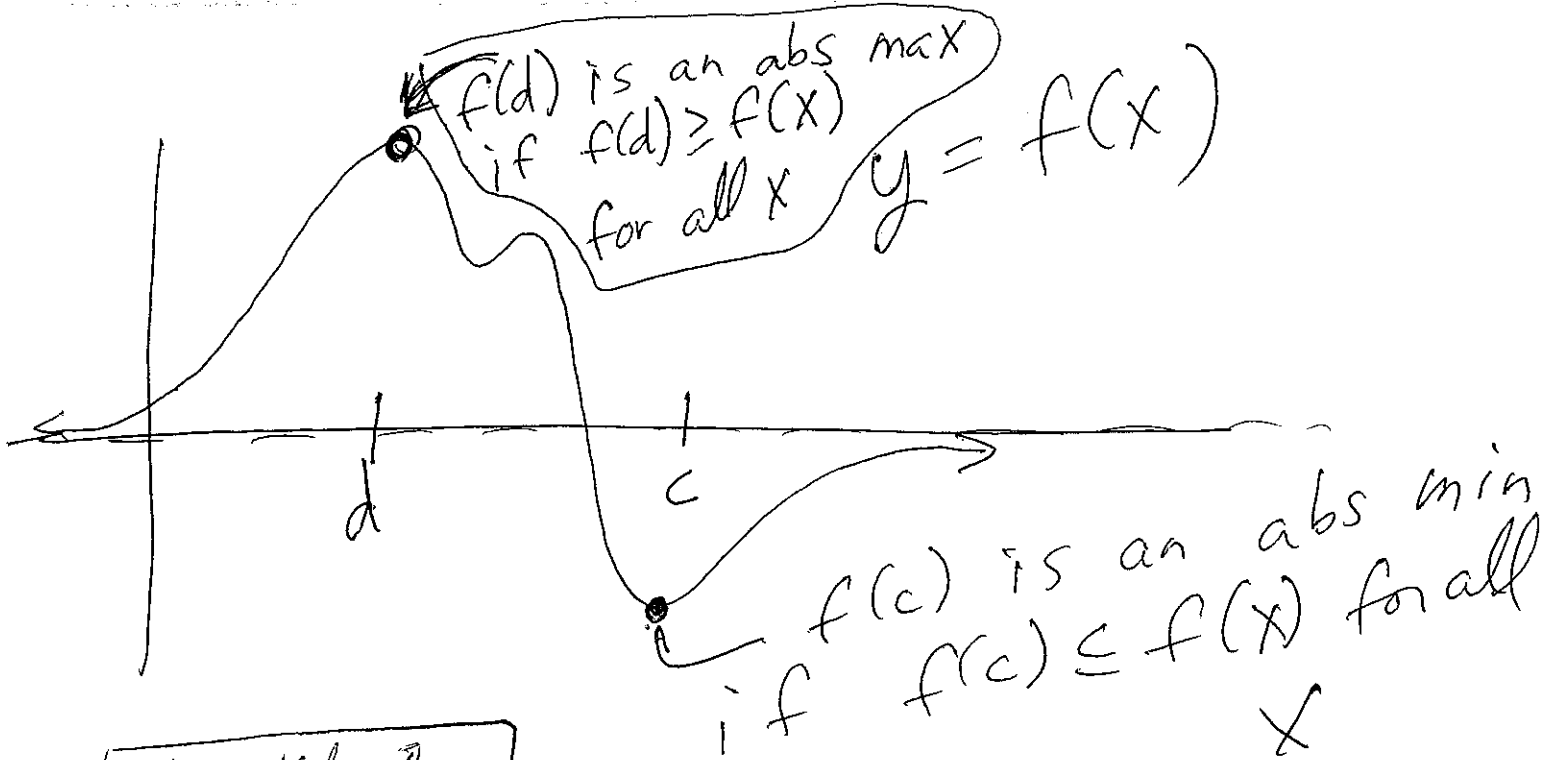 f(d) is an abs max
if f(d) ≥ f(x)
for all x
y = f(x)
d
c
f(c) is an abs min
if f(c) ≤ f(x) for all
x